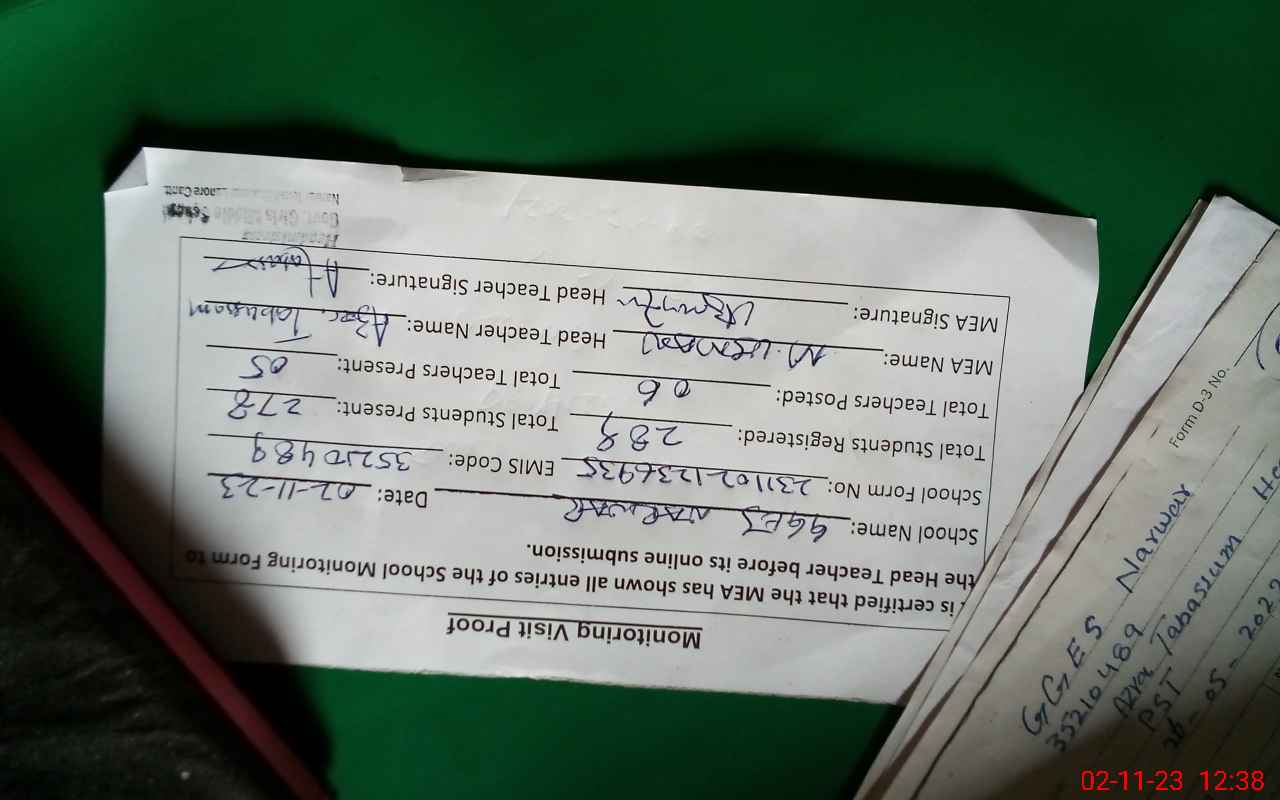 Monitoring Visit Proof
is certified that the MEA has shown all entries of the School Monitoring Form to
the Head Teacher before its online submission.
School Name: GGES NARWAR Date: 02-11-23
School Form No: 231102-1236935 EMIS Code: 35210489
Total Students Registered: 289 Total Students Present: 278
Total Teachers Posted: 06 Total Teachers Present: 05
MEA Name: M. USMAN Head Teacher Name: Azra Tabussam
MEA Signature: Head Teacher Signature:
Headmistress
Govt. Girls Middle
Lahore Cantt
Form D-3 No.
GGES Narwar
35210489
Azra Tabassum
PST
26-05-202
02-11-23 12:38